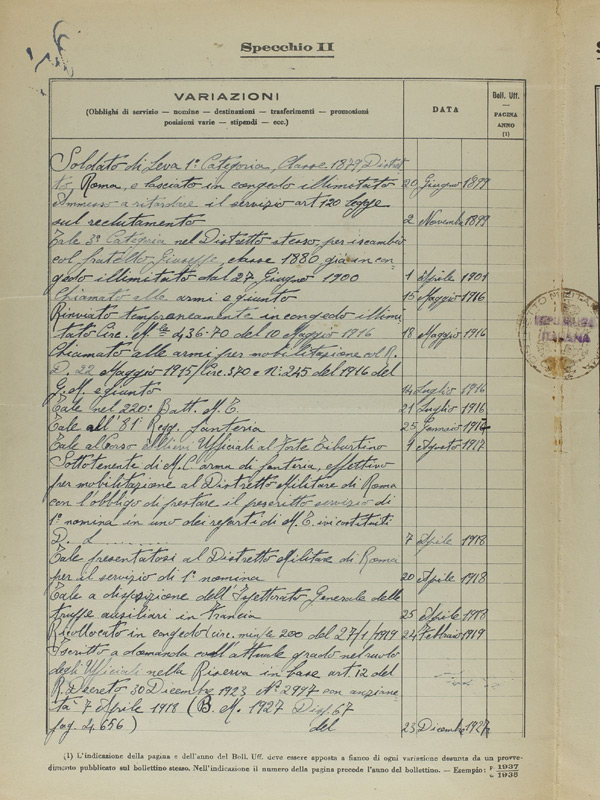 Specchio II
VARIAZIONI
(Obblighi di servizio — nomine — destinazioni — trasferimenti — promozioni
posizioni varie — stipendi — ecc.)
DATA
Boll. Uff.
—
PAGINA
ANNO
(1)
Soldato di Leva 1ª Categoria, Classe 1879 Distret
to Roma, e lasciato in congedo illimitato 20 Giugno 1899
Ammesso a ritardare il servizio art 120 legge
sul reclutamento 2 Novembre 1899
Tale 3ª Categoria nel Distretto stesso, per iscambio
col fratello Giuseppe, classe 1880 già in con
gedo illimitato dal 27 Giugno 1900 1 Aprile 1901
Chiamato alle armi e giunto 15 Maggio 1916
Rinviato temporaneamente in congedo illimi
tato Circ. del 10 Maggio 1916 18 Maggio 1916
Chiamato alle armi per mobilitazione ed R.
D. 22 Maggio 1915/Circ. 370 e Nº 245 del 1916 del
G. M. e giunto 14 Luglio 1916
Tale nel 220º Batt. M. T. 21 Luglio 1916
Tale all' 81º Regg. fanteria 25 Gennaio 1917
Tale al Corso allievi Ufficiali al Forte Tiburtino 1 Agosto 1917
Sottotenente di M.C. arma di fanteria, effettivo
per mobilitazione al Distretto Militare di Roma
con l'obbligo di prestare il prescritto servizio di
1ª nomina in uno dei reparti di M. T. ivi costituiti
D. L. 7 Aprile 1918
Tale presentatosi al Distretto Militare di Roma
per il servizio di 1ª nomina 20 Aprile 1918
Tale a disposizione dell'Ispettorato Generale delle
truppe ausiliari in Francia 25 Aprile 1918
Ricollocato in congedo (circ. minle 200 del 27/1/1919 24 Febbraio 1919
Iscritto a domanda coll'attuale grado nel ruolo
degli Ufficiali nella Riserva in base art. 12 del
R. Decreto 30 Dicembre 1923 Nº 2997 con anziani
tà 7 Aprile 1918 (B. M. 1927 Disp. 67
pag. 4656) del 23 Dicembre 1927
(1) L'indicazione della pagina e dell'anno del Boll. Uff. deve essere apposta a fianco di ogni variazione desunta da un provve-
dimento pubblicato sul bollettino stesso. Nell'indicazione il numero della pagina precede l'anno del bollettino. — Esempio: 1937
1938